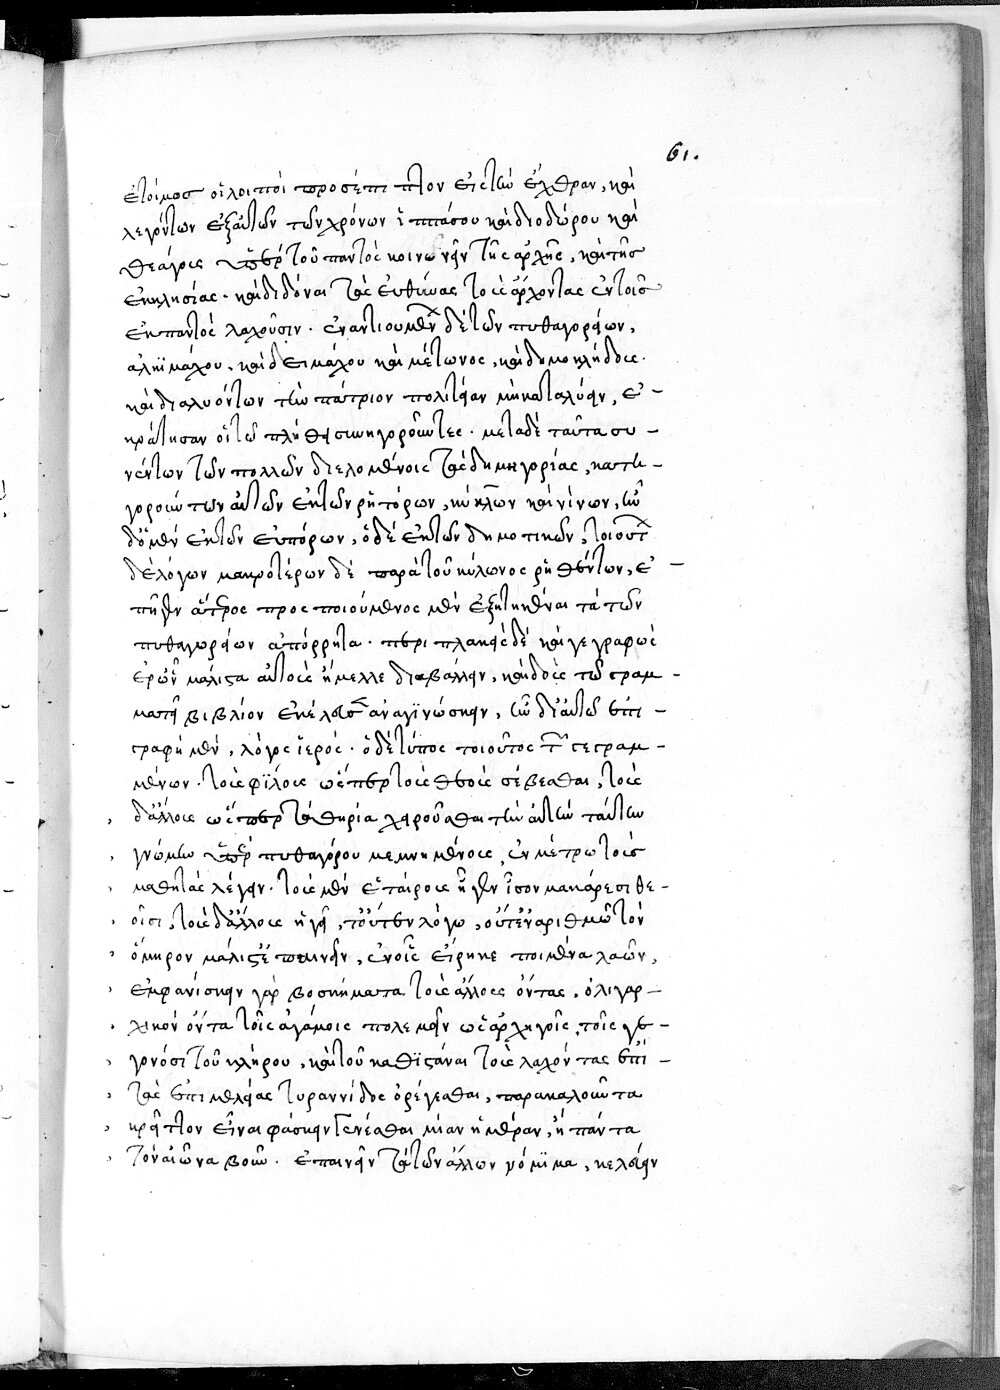 61.
ἑτοίμως οἱ λοιποὶ προσέπιπτον εἰς τὴν ἔχθραν, καὶ
λεγόντων ἐξ αὐτῶν τῶν χρόνων ἱππάσου καὶ διοδώρου καὶ
θεάγους ὑπὲρ τοῦ παντὸς κοινωνεῖν τῆς ἀρχῆς, καὶ τῆς
ἐκκλησίας· καὶ διδόναι τὰς εὐθύνας τοὺς ἄρχοντας ἐν τοῖς
ἐκ παντὸς λαχοῦσιν. ἐναντιουμένων δὲ τῶν πυθαγορείων,
ἀλκιμάχου, καὶ δεινάρχου καὶ μέτωνος, καὶ δημοκήδους.
καὶ διαλυόντων τὴν πάτριον πολιτείαν μὴ καταλύειν, ἐ-
κράτησαν οἱ τῷ πλήθει συνηγοροῦντες. μετὰ δὲ ταῦτα συ-
νέντων τῶν πολλῶν διελομένοις τὰς δημηγορίας, κατη-
γορούντων αὐτῶν ἐκ τῶν ῥητόρων, κύκλων καὶ νίνων, ὧν
δ' ὁ μὲν ἐκ τῶν εὐπόρων, ὁ δὲ ἐκ τῶν δημοτικῶν, τοιούτων
δὲ λόγων μακροτέρων δὲ παρὰ τοῦ κύλωνος ῥηθέντων, ἐ-
πῆγεν ἅτερος προσποιούμενος μὲν ἐξητηκέναι τὰ τῶν
πυθαγορείων ἀπόρρητα. περιπλακὼς δὲ καὶ γεγραφὼς
ἐξ ὧν μάλιστα αὐτοὺς ἤμελλε διαβάλλειν, καὶ δοὺς τῷ γραμ-
ματεῖ βιβλίον ἐκέλευσεν ἀναγινώσκειν, ὧν δι' αὐτῷ ἐπι-
γραφὴ μὲν, λόγος ἱερός· ὁ δὲ τύπος τοιοῦτος τῶν γεγραμ-
μένων. τοὺς φίλους ὥσπερ τοὺς θεοὺς σέβεσθαι, τοὺς
δ' ἄλλους ὥσπερ τὰ θηρία χειροῦσθαι τὴν αὐτὴν ταύτην
γνώμην ὑπὲρ πυθαγόρου μεμνημένοις, ἐν μέτρῳ τοὺς
μαθητὰς λέγειν. τοὺς μὲν ἑταίρους ἦγεν ἶσον μακάρεσι θε-
οῖσι, τοὺς δ' ἄλλους ἡγεῖτ' οὔτ' ἐν λόγῳ, οὔτ' ἐν ἀριθμῷ τὸν
ὅμηρον μάλιστ' ἐπαινεῖν, ἐν οἷς εἴρηκε ποιμένα λαῶν,
ἐμφανίσκειν γὰρ βοσκήματα τοὺς ἄλλους ὄντας, ὀλιγαρ-
χικὸν ὄντα τοῖς κυάμοις πολεμεῖν ὡς ἀρχηγοῖς, τοῖς γε-
γονόσι τοῦ κλήρου, καὶ τοῦ καθιστάναι τοὺς λαχόντας ἐπὶ
τὰς ἐπιμελείας τυραννίδος ὀρέγεσθαι, παρακαλοῦντα
κρεῖττον εἶναι φάσκειν γενέσθαι μίαν ἡμέραν, ἢ πάντα
τὸν αἰῶνα βοῦν. ἐπαινεῖν τὰ τῶν ἄλλων νόμιμα, κελεύειν